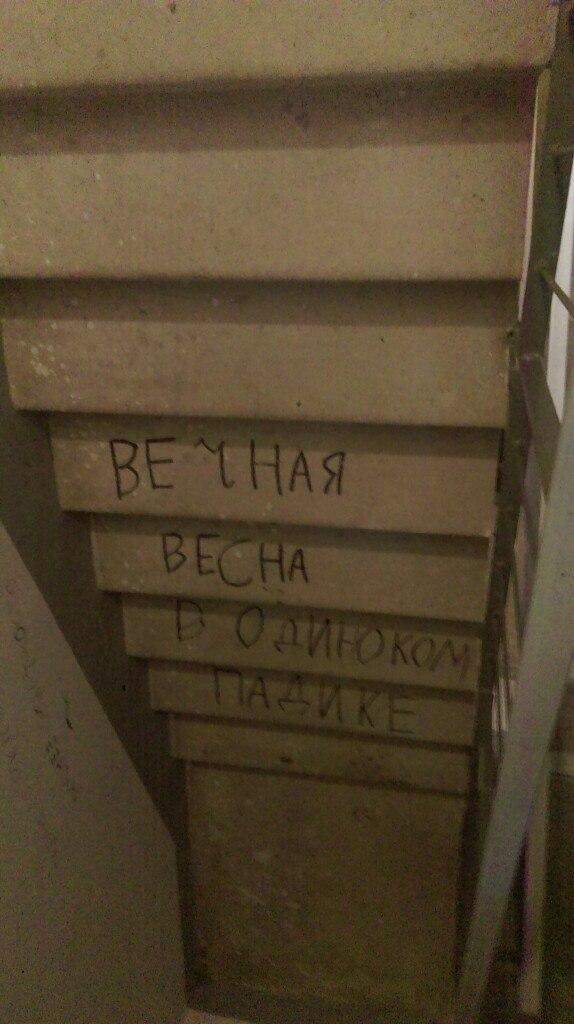 ВЕЧНАЯ
ВЕСНА
В ОДИНОКОМ
ПАДИКЕ